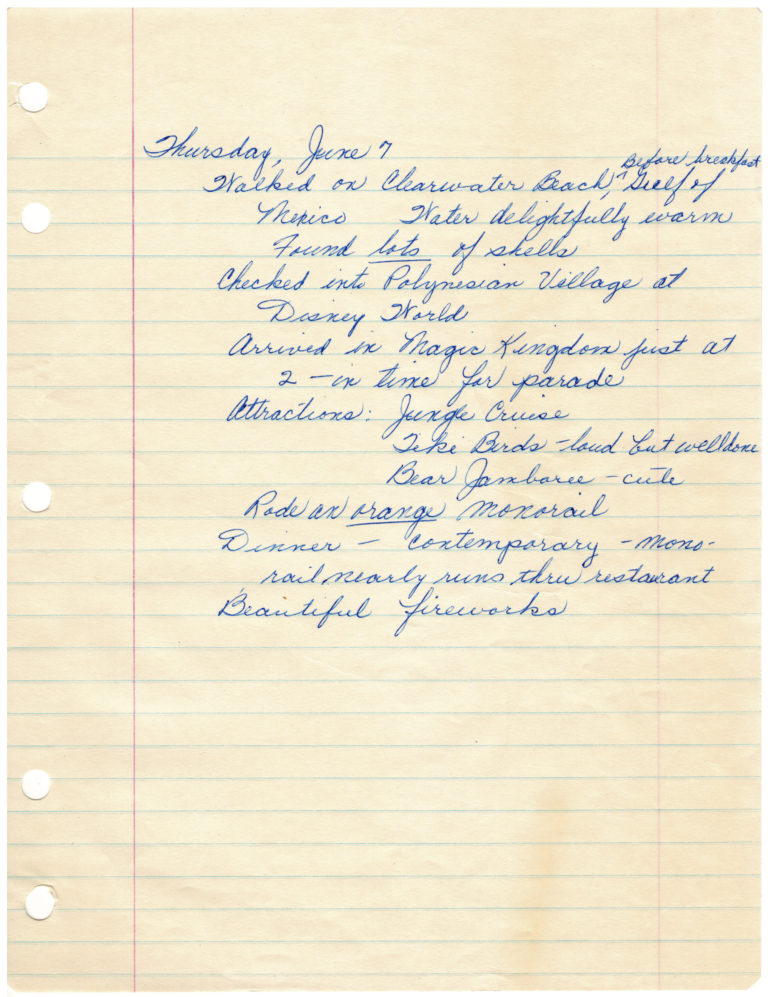 Thursday, June 7
Before breakfast
Walked on Clearwater Beach, ^ Gulf of
Mexico Water delightfully warm
Found lots of shells
Checked into Polynesian Village at
Disney World
Arrived in Magic Kingdom just at
2 — in time for parade
Attractions: Jungle Cruise
Tiki Birds - loud but well done
Bear Jamboree - cute
Rode an orange monorail
Dinner — Contemporary - mono-
rail nearly runs thru restaurant
Beautiful fireworks